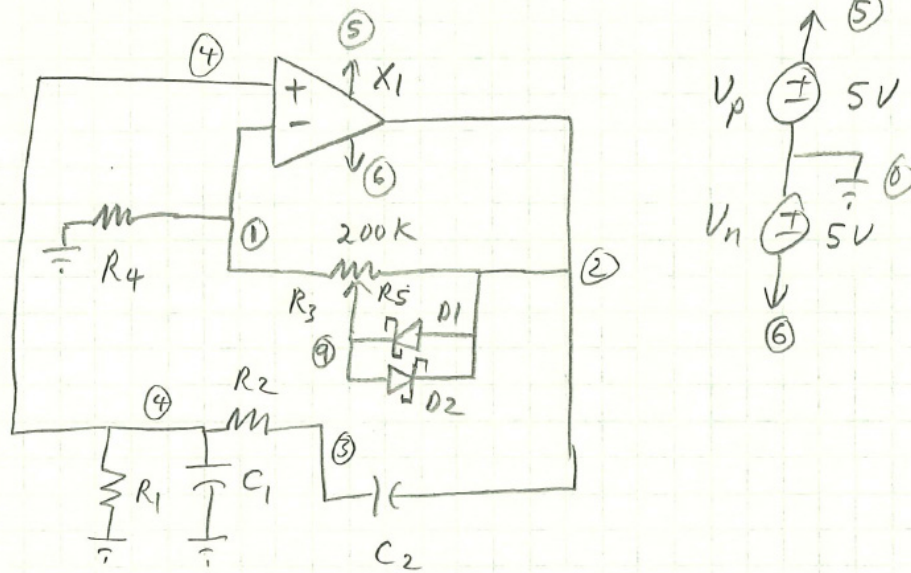 ④
⑤
X1
+
-
⑥
R4
①
200K
R3
R5
②
⑨
D1
D2
④
R2
③
R1
C1
C2
⑤
Vp
+
-
5V
⓪
Vn
+
-
5V
⑥